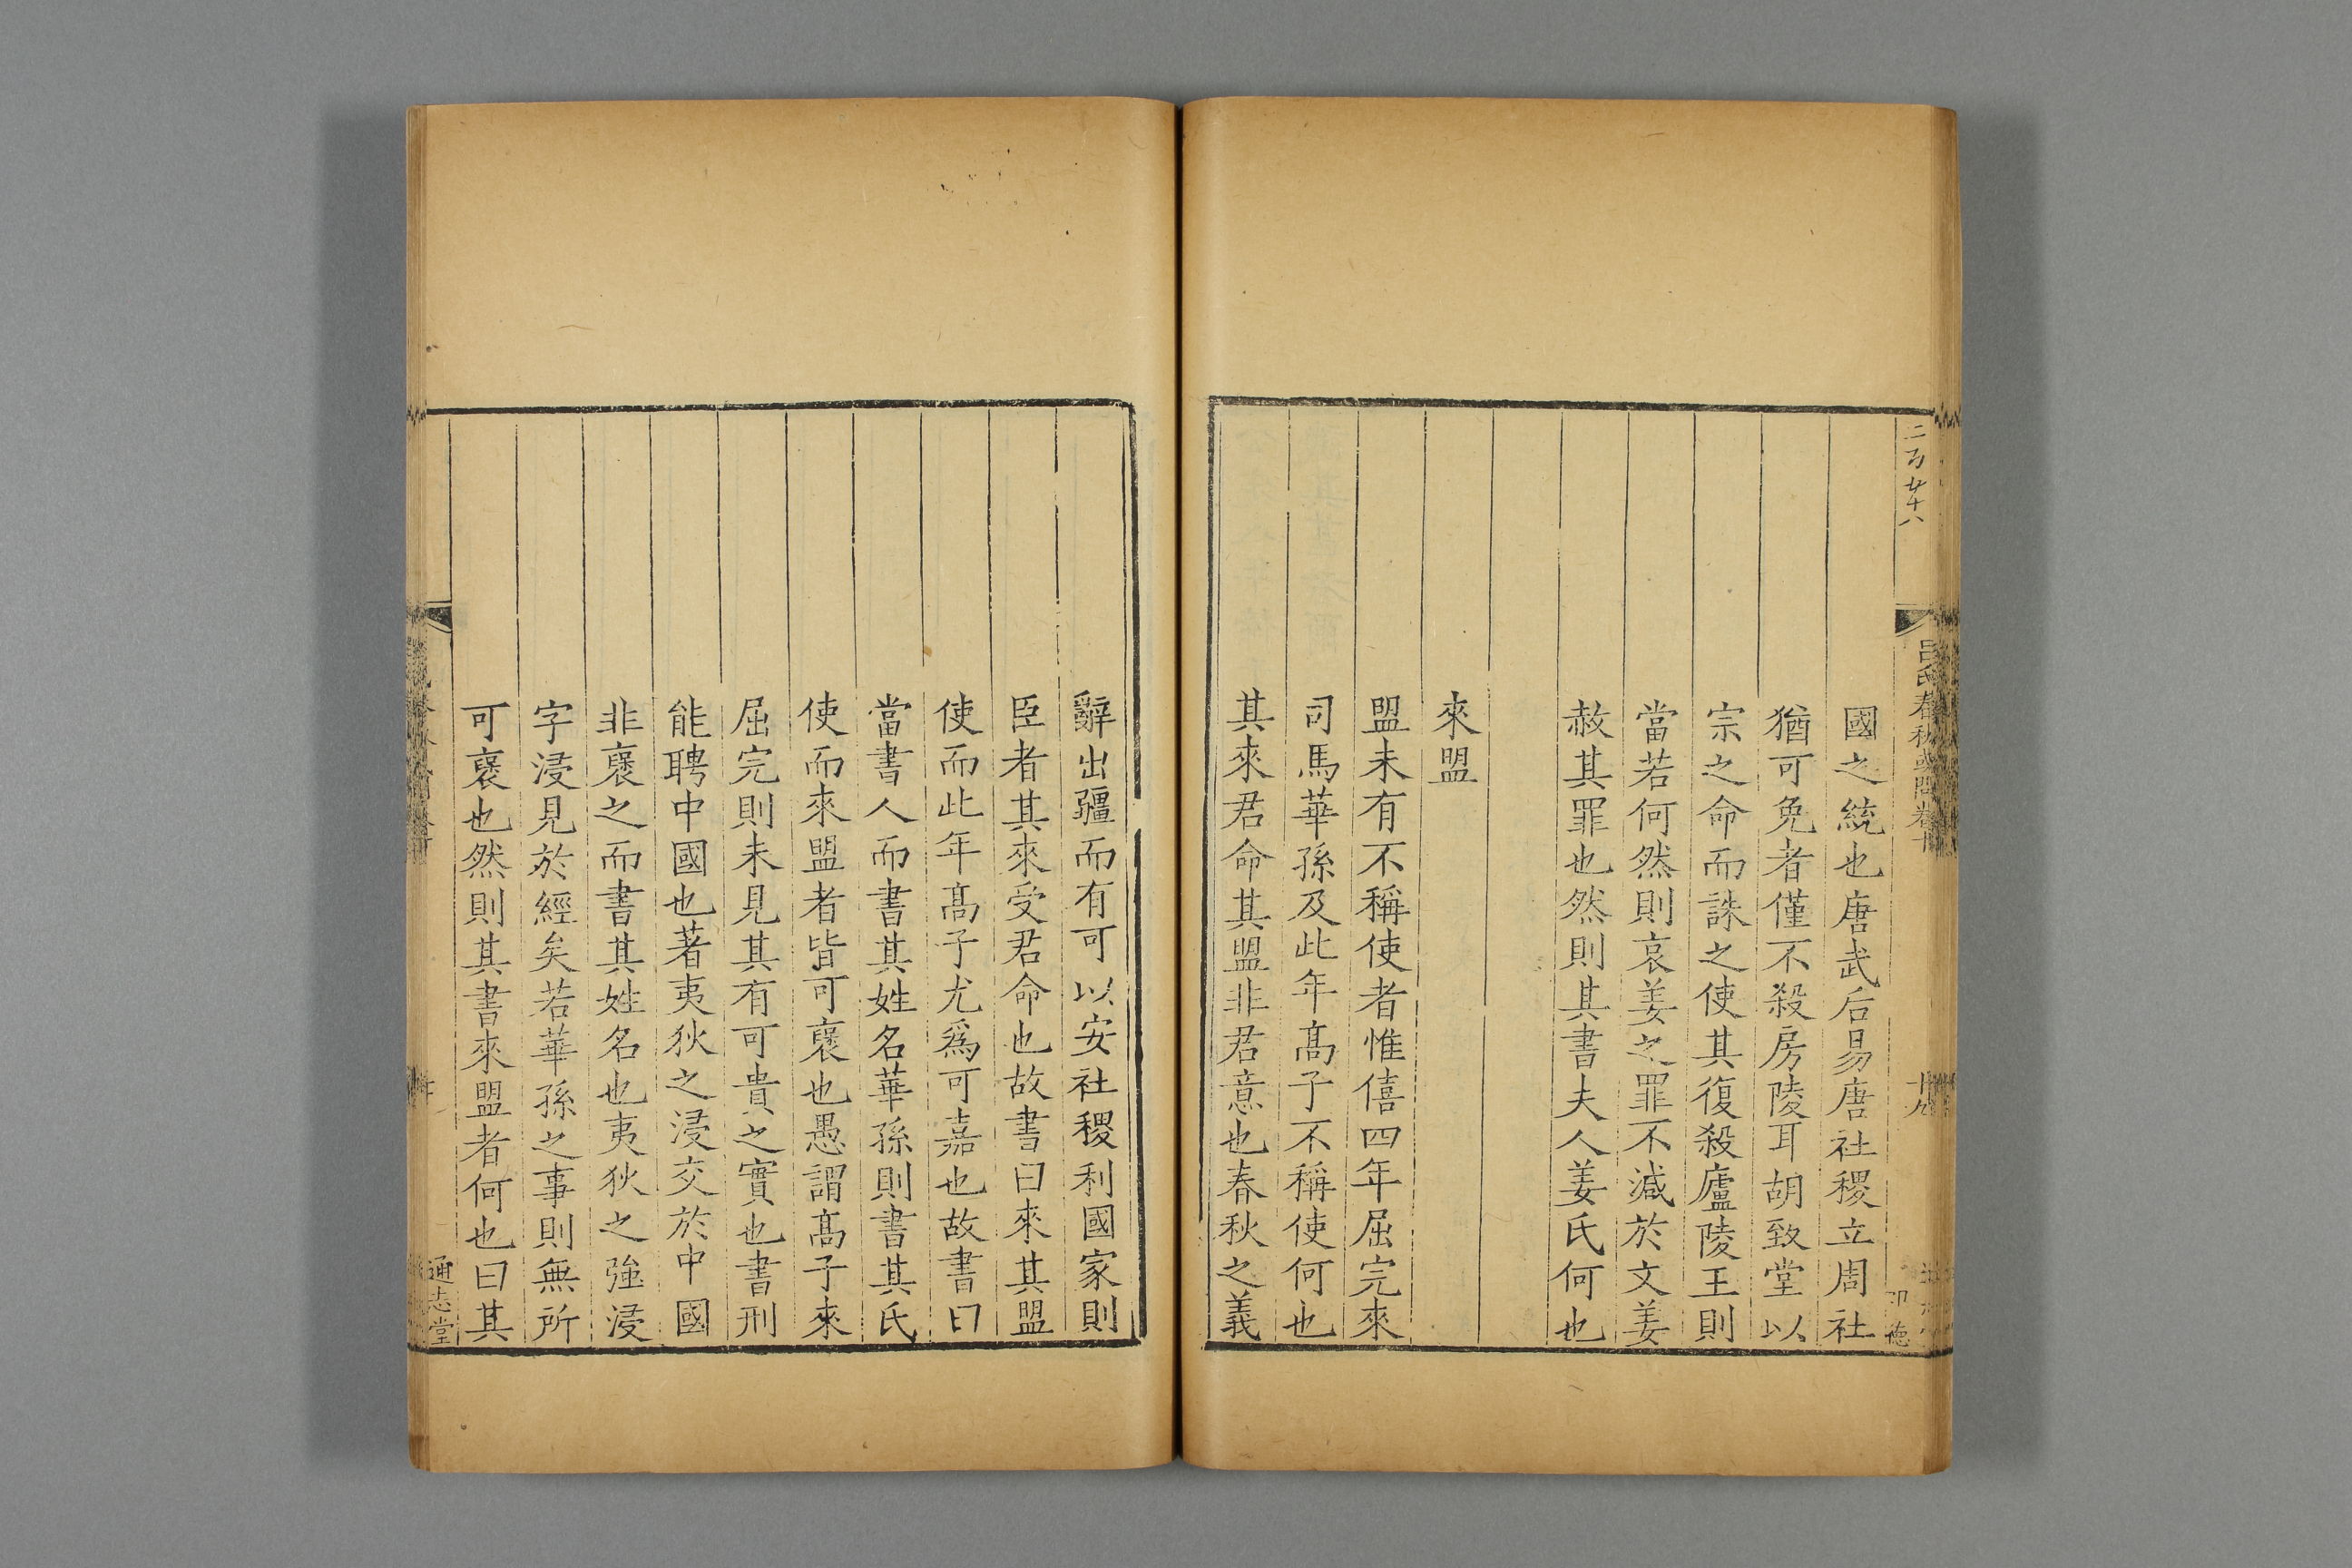 國之統也唐武后易唐社稷立周社
猶可免者僅不殺房陵耳胡致堂以
宗之命而誅之使其復殺廬陵王則
當若何然則哀姜之罪不減於文姜
赦其罪也然則其書夫人姜氏何也
來盟
盟未有不稱使者惟僖四年屈完來
司馬華孫及此年髙子不稱使何也
其來君命其盟非君意也春秋之義
辭出疆而有可以安社稷利國家則
臣者其來受君命也故書曰來其盟
使而此年髙子尤爲可嘉也故書曰
當書人而書其姓名華孫則書其氏
使而來盟者皆可襃也愚謂髙子來
屈完則未見其有可貴之實也書刑
能聘中國也著夷狄之浸交於中國
非襃之而書其姓名也夷狄之強浸
字浸見於經矣若華孫之事則無所
可襃也然則其書來盟者何也曰其
呂氏春秋或問卷十
十九
通志堂